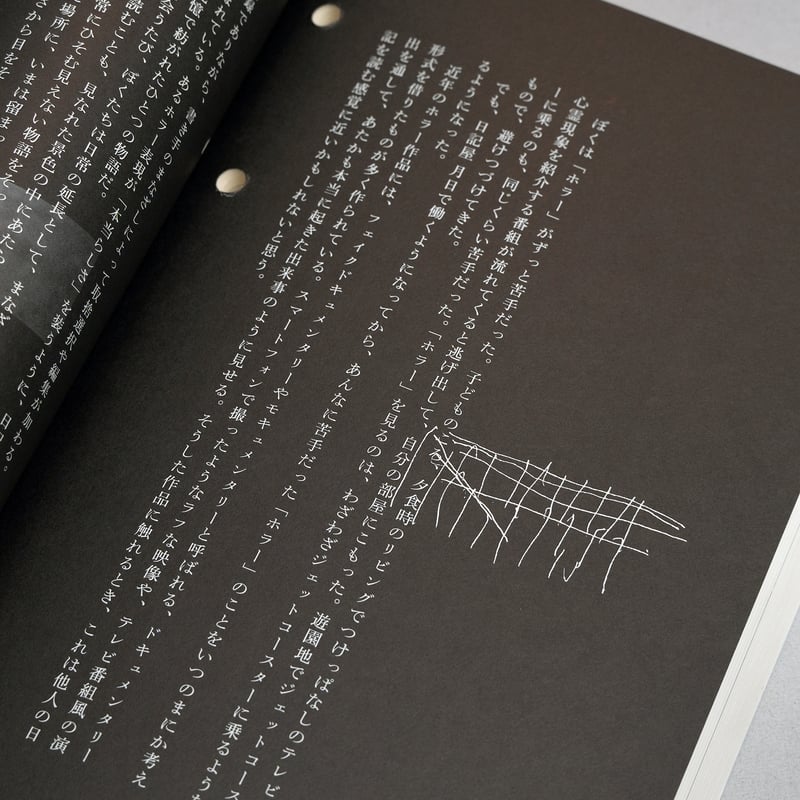 ぼくは「ホラー」がずっと苦手だった。子どもの 夕食時のリビングでつけっぱなしのテレビ
心霊現象を紹介する番組が流れてくると逃げ出して、自分の部屋にこもった。遊園地でジェットコース
ーに乗るのも、同じくらい苦手だった。「ホラー」を見るのは、わざわざジェットコースターに乗るような
もので、避けつづけてきた。
でも、日記屋 月日で働くようになってから、あんなに苦手だった「ホラー」のことをいつのまにか考え
るようになった。
近年のホラー作品には、フェイクドキュメンタリーやモキュメンタリーと呼ばれる、ドキュメンタリー
形式を借りたものが多く作られている。スマートフォンで撮ったようなラフな映像や、テレビ番組風の演
出を通して、あたかも本当に起きた出来事のように見せる。そうした作品に触れるとき、これは他人の日
記を読む感覚に近いかもしれないと思う。
でありながら、書き手のまなざしによって取捨選択や編集が加わる。
れている。あるホラー表現が「本当らしさ」を装うように、日
憶で紡がれたひとつの物語だ。
会うたび、ぼくたちは日常の延長として、まなざ
読むことも、見なれた景色の中にあたら
常にひそむ見えない物語をそっ
場所に、いまは留まっ
から目をそ